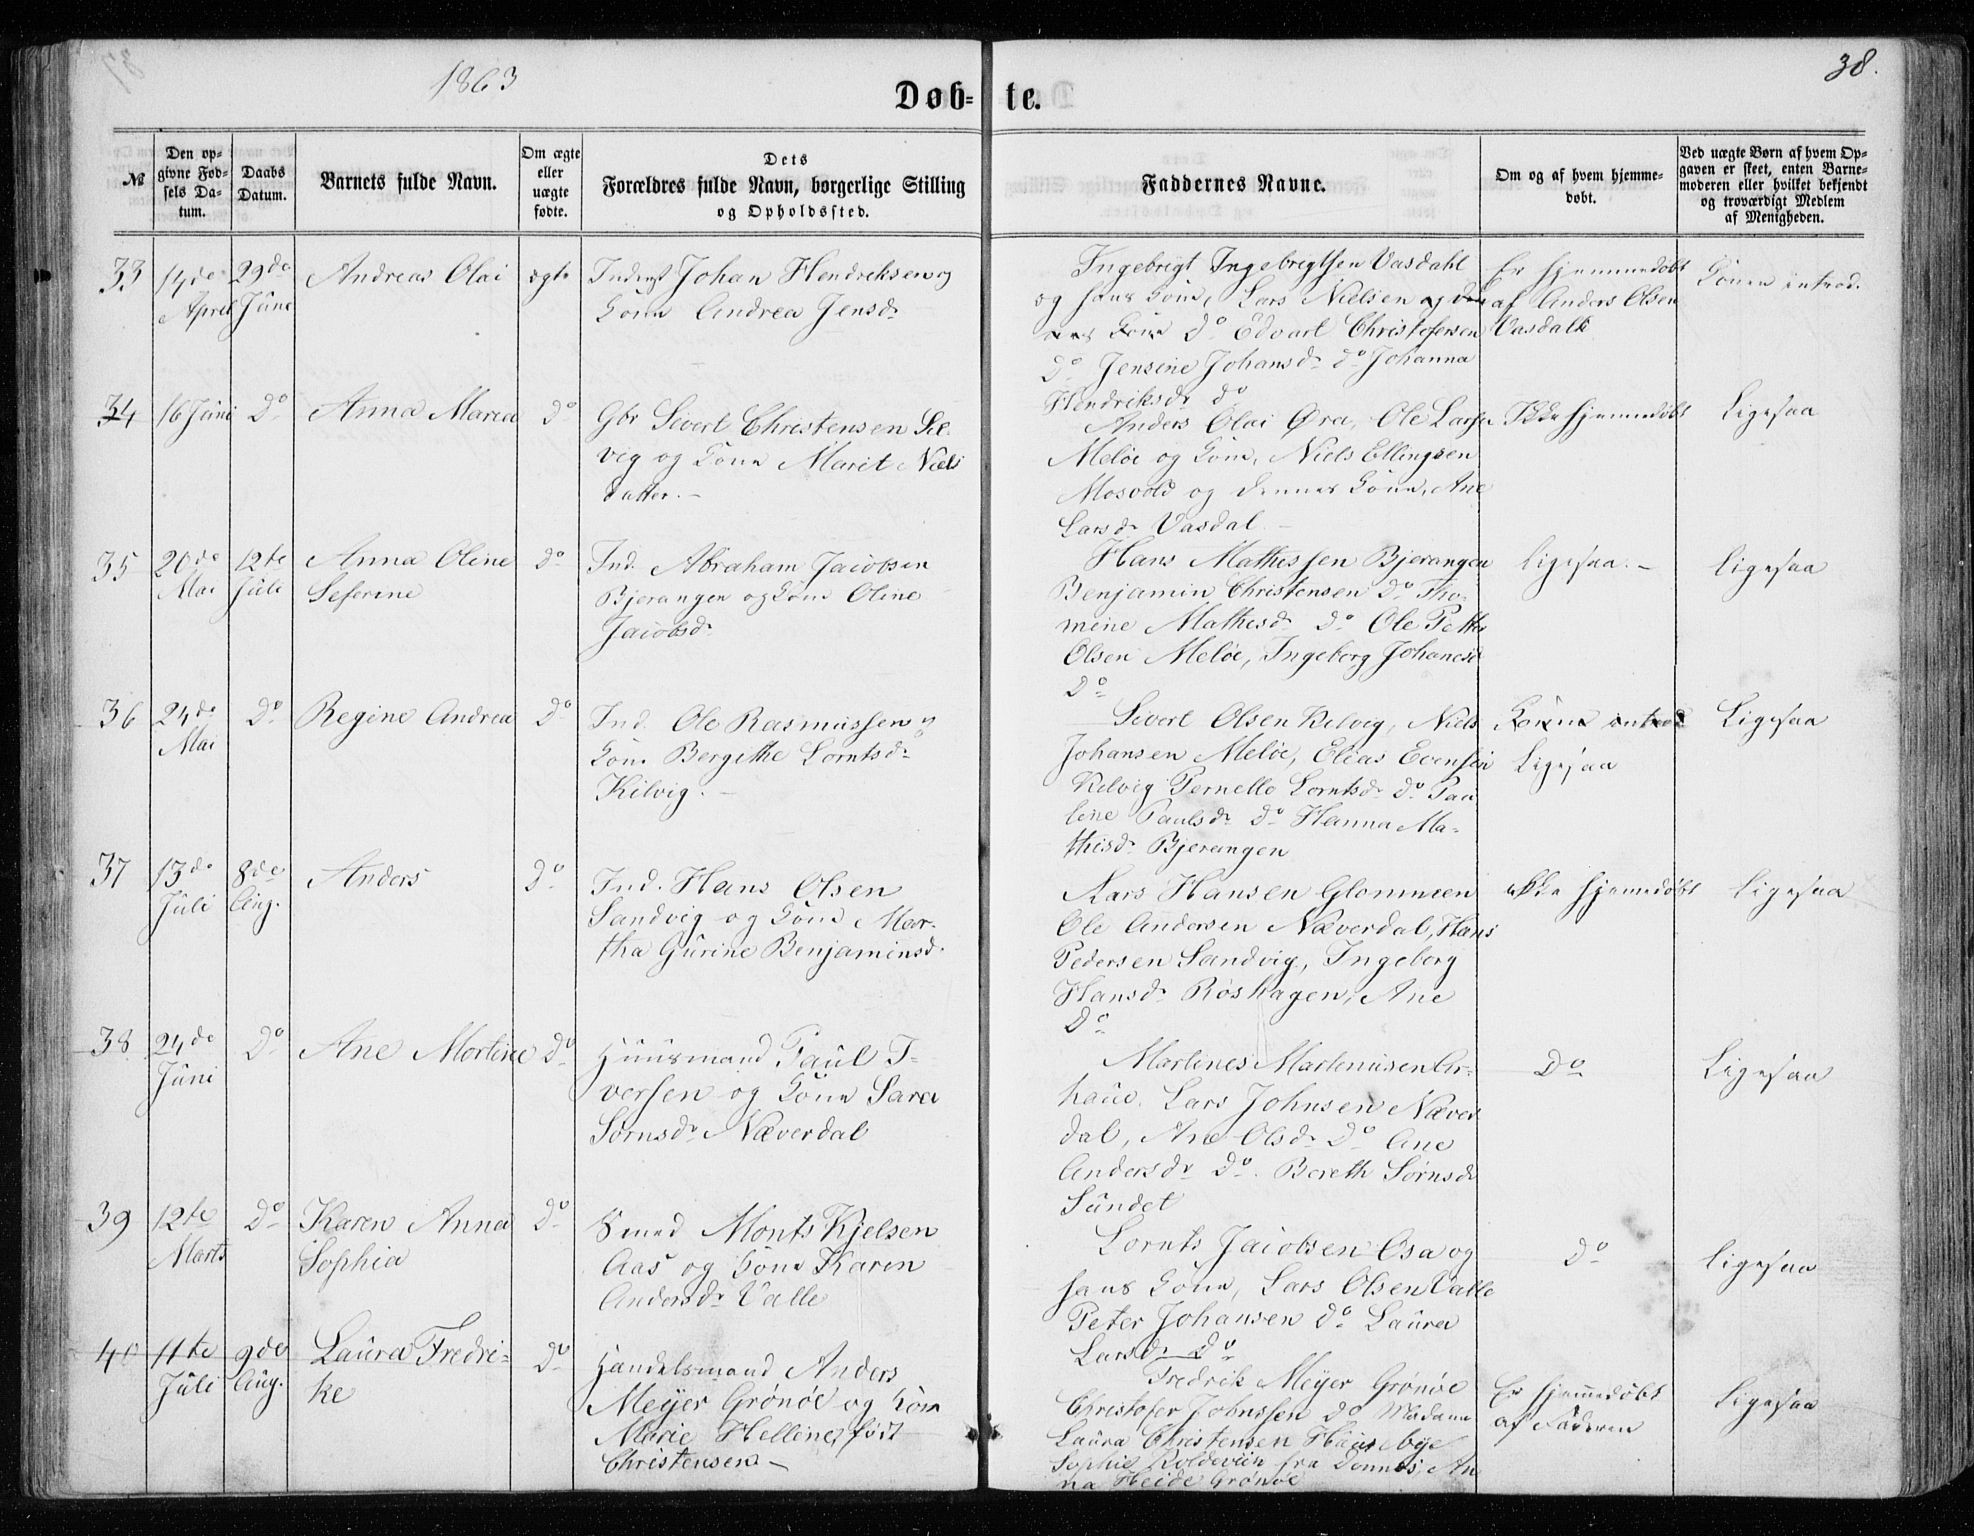 1863
38.
Døb-te.
№
Den op-
givne Fød-
sels Da-
tum.
Daabs
Datum.
Barnets fulde Navn.
Om ægte
eller
uægte
fødte.
Dets
Forældres fulde Navn, borgerlige Stilling
og Opholdssted.
Faddernes Navne.
Om og af hvem hjemme-
døbt.
Ved uægte Børn af hvem Op-
gaven er skeet, enten Barne-
moderen eller hvilket bekjendt
og troværdigt Medlem
af Menigheden.
33
14de
April
29de
Júne
Andreas Olai
ægte
Inderst Johan Hendriksen og
Kone Andrea Jensdr
Ingebrigt Ingebregtsen Vasdahl
og hans Kone, Lars Nielsen og den
nes Kone Do Edvart Christofersen
Do Jensine Johansdr Do Johanna
Hendriksdr Do
Er hjemmedøbt
af Anders Olsen
Vasdalk
Konen introd.
34
16 Júni
Do
Anna Maria
Do
Gbr Sivert Christensen Sel-
vig og Kone Marit Niels
datter. –
Anders Olai Øra, Ole Larsen
Meløe og Kone, Niels Ellingsen
Mosvold og dennes Kone, Ane
Larsdr Vasdal. –
Ikke hjemmedøbt
Ligesaa
35
20de
Mai
12te
Júli
Anna Oline
Seferine
Do
Ind. Abraham Jacobsen
Bjerangen og Kone Oline
Jacobsdr
Hans Mathessen Bjerangen
Benjamin Christensen Do Tho-
mine Mathisdr Do Ole Petter
Olsen Meløe, Ingeborg Johanesd
Do
Ligesaa. –
Ligesaa
36
24de
Mai
Do
Regine Andrea
Do
Ind. Ole Rasmussen og
Kone Bergithe Lorntsdr
Kilvig. –
Sivert Olsen Kelvig, Niels
Johansen Meløe, Elias Evensen
Kelvig Pernelle Lorntsdr Do Pau
line Paulsdr Do Hanna Ma-
thisdr Bjerangen
Konen introd
Ligesaa
Ligesaa
37
13de
Júli
8de
Aug.
Anders
Do
Ind. Hans Olsen
Sandvig og Kone Mar-
tha Gúrine Benjaminsd.
Lars Hansen Glommen
Ole Andersen Næverdal, Hans
Pedersen Sandvig, Ingeborg
Hansdr Røshagen, Ane
Do
ikke hjemmedøbt
Ligesaa
38
24de
Júni
Do
Ane Martine
Do
Húúsmand Paul I-
versen og Kone Sara
Sørnsdr Næverdal
Martines Martinúsen
haúe. Lars Johnsen Næver
dal, Ane Olsdr Do Ane
Andersdr Do. Bereth Sørnsdr
Súndet
Do
Ligesaa
39
12te
Marts
Do
Karen Anna
Sophia
Do
Smed Monts Kjelsen
Aas og Kone Karen
Andersdr Valle
Lornts Jacobsen Osa og
hans Kone, Lars Olsen Valle
Peter Johansen Do Laúra
Larsdr Do
Do
Ligesaa
40
11te
Júli
9de
Aug.
Laúra Fredri-
ke
Do
Handelsmand Anders
Meyer Grønøe og Kone
Marie Helline, født
Christensen. –
Fredrik Meyer Grønøe
Christofer Johnssen Do Madam
Laúra Christensen Húúsebye
Sophie Koldevin fra Dønnes, An
na Heide Grønøe
Er hjemmedøbt
af Faderen
Ligesaa